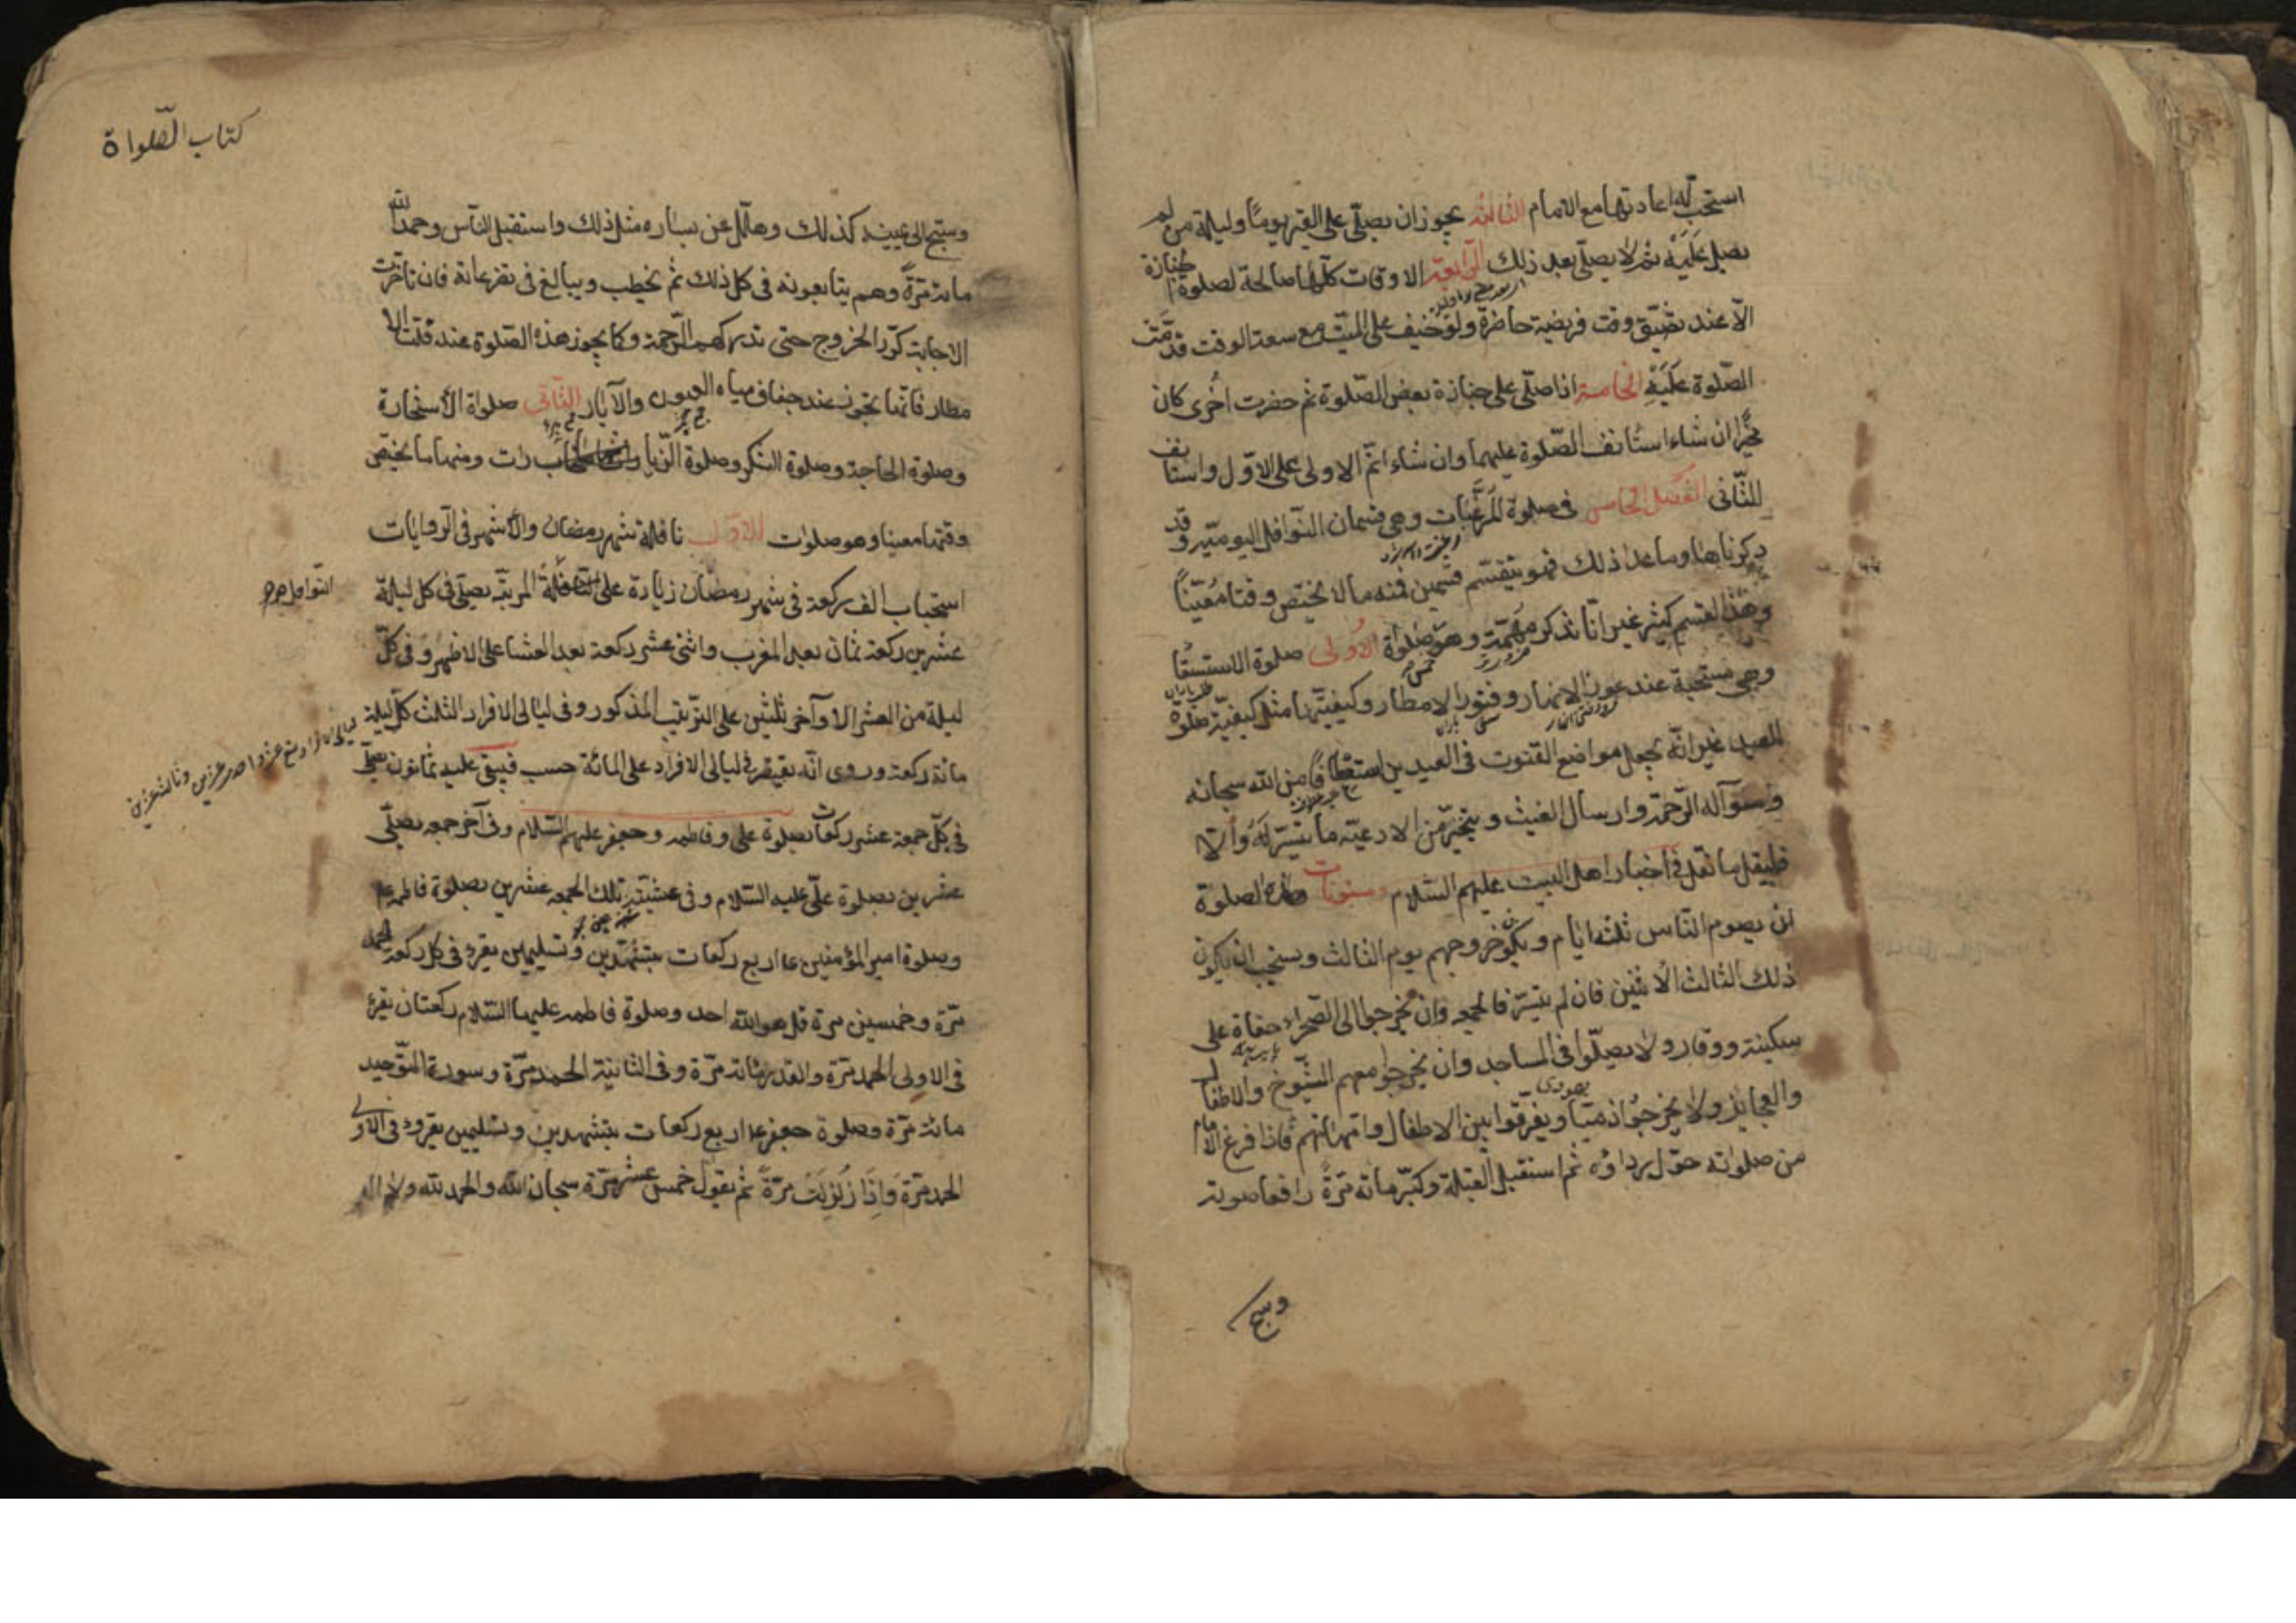 استحبّ له اعادتها مع الامام الثالثة يجوز ان يصلّى على القبر يومًا وليلة من لم
يصل عَلَيْه ثم لا يصلّى بعد ذلك الرّابعة الاوقات كلّها صالحة لصلوة الجنازة
الّا عند تضيّق وقت فريضة حاضرة ولو خيف على الميّت مع سعة الوقت قدّمت
الصّلوة عَلَيْهِ الخامسة اذا صلّى على جنازة بعض الصّلوة ثم حضرت اخرى كان
مخيّرًا ان شاء استأنف الصّلوة عليهما وان شاء اتمّ الاولى على الاوّل واستأنف
للثّانى الفصل الخامس فى صلوة المرغّبات وهى قسمان النّوافل اليوميّة وقد
ذكرناها وما عدا ذلك فهو ينقسم قسمين فمنه ما لا يختص وقتا مُعيّنًا
وهذا القسم كثير غير انّا نذكر مهمّة وهو صلواة الاولى صلوة الاستسقا
وهى مستحبة عند غور الانهار وفتور الامطار وكيفيّتها مثل كيفيّة صلوة
العيد غير انّه يجعل مواضع القنوت فى العيدين استعطافًا من الله سبحانه
وسوآله الرّحمة وارسال الغيث ويتخيّر من الادعيّة ما تيسّر لَهُ وَالّا
فليقل ما نقل فى اخبار اهل البيت عليهم السّلام ومسنونات هذه الصلوة
ان يصوم النّاس ثلثة ايّام ويكون خروجهم يوم الثالث ويستحب ان يكون
ذلك الثالث الاثنين فان لم يتيسّر فالجمعه وان يخرجوا الى الصّحراء حفاة على
سكينة ووقار ولا يصلّوا فى المساجد وان يخرجوا معهم الشّيوخ والاطفال
والعجايز ولا يخرجوُا ذميّاً ويفرّقوا بين الاطفال وامّهاتهم فاذا فرغ الامام
من صلواته حوّل رداؤه ثم استقبل القبلة وكبّر مائة مَرّةً رافعا صوته
وسبح
كتاب الصّلواة
وسبّح الى يمينه كذلك وهلّل عن يساره مثل ذلك واستقبل النّاس وحمد الله
مائة مَرّةً وهم يتابعونه فى كل ذلك ثم يخطب ويبالغ فى تضرعاته فان تاخّرت
الاجابة كرّر الخروج حتى تدركهم الرّحمة وكما يجوز هذه الصّلوة عند قلّت الا
مطار فانّها تجوز عند جفاف مياه العيون والآبار الثّانى صلواة الاستخارة
وصلوة الحاجة وصلوة الشكر وصلوة الزّيارات ومنها ما يختصّ
وقتها معينا وهو صلوات الاوّل نافلة شهر رمضان والاشهر فى الرّوايات
استحباب الف ركعة فى شهر رمضان زيادة على النّافلة المرتبة يصلّى فى كل ليلة
النّوافل
عشرين ركعة ثمان بعد المغرب واثنى عشر ركعة بعد العشا على الاظهر وَفى كلّ
ليلة من العشر الاواخر ثلثين على الترتيب المذكور وفى ليالى الافراد الثلث كلّ ليلة
ليالى الافراد
مائة ركعة وروى انّه يقتصر فى ليالى الافراد على المائة حسب فيبقى عليه ثمانون يصلّى
فى كلّ جمعة عشر ركعات بصلوة على وفاطمه وجعفر عليهم السّلام وفى آخر جمعه يصلّى
عشرين بصلوة علّى عليه السّلام وفى عشيّته تلك الجمعه عشرين بصلوة فاطمه ع
وصلوة امير المؤمنين ع اربع ركعات بتشهّدين وتسليمين يقرء فى كل ركعة الحمد
مَرّة وخمسين مرة قل هو الله احد وصلوة فاطمه عليها السّلام ركعتان يقرء
فى الاولى الحمد مَرّة والقدر مائة مَرّة وفى الثانيّة الحمد مَرّة وسورة التّوحيد
مائة مَرّة وصلوة جعفر ع اربع ركعات بتشهدين وتسليمين يقرء فى الاولى
الحمد مَرّة وَاِذَا زُلْزِلَتْ مرّةً ثم يقول خمس عشر مَرّة سبحان الله والحمد لله ولا اله